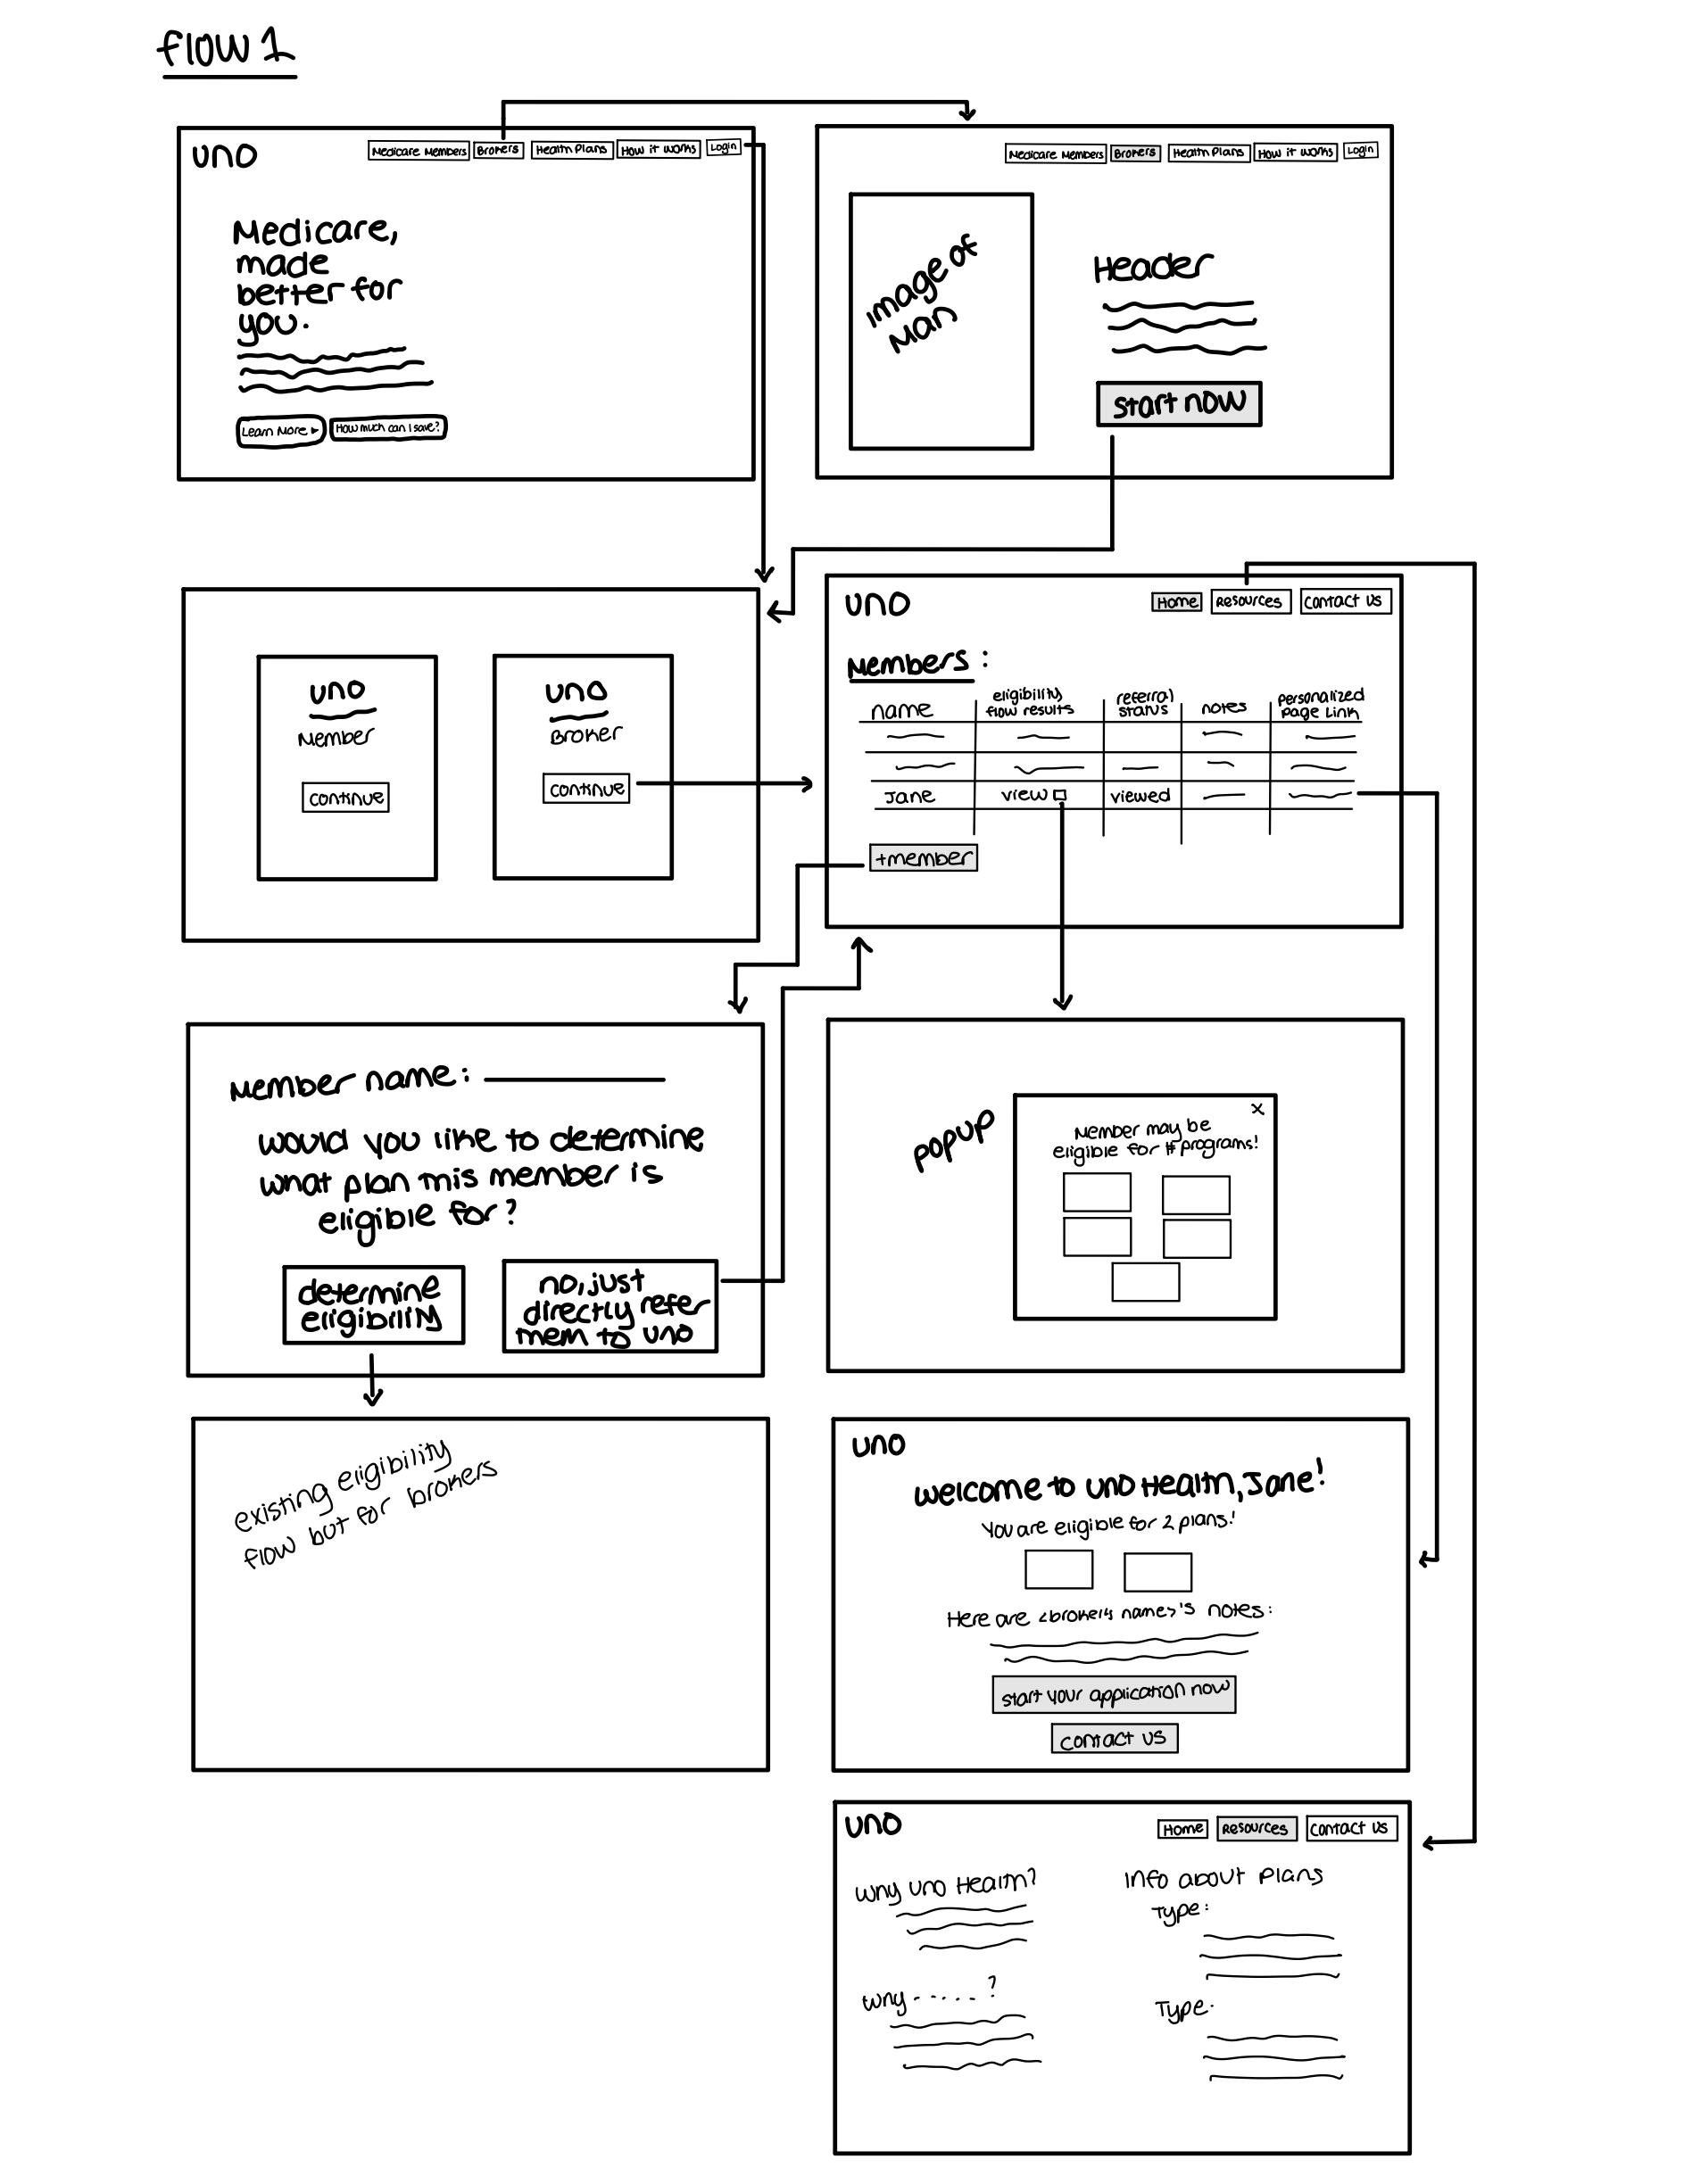 flow 1
uno
Medicare Members
Brokers
Health Plans
How it works
Login
Medicare,
made
better for
you.
Learn More
How much can I save?
Medicare Members
Brokers
Health Plans
How it works
Login
image of
Man
Header
start now
uno
Member
continue
uno
Broker
continue
uno
Home
Resources
Contact Us
Members:
name
eligibility
flow results
referral
status
notes
personalized
page link
Jane
view
viewed
+member
Member name:
would you like to determine
what plan this member is
eligible for?
determine
eligibility
no, just
directly refer
them to uno
popup
x
Member may be
eligible for # programs!
existing eligibility
flow but for brokers
uno
Welcome to Uno Health, Jane!
You are eligible for 2 plans!
Here are <broker's name>'s notes:
start your application now
contact us
uno
Home
Resources
Contact Us
Why Uno Health?
Why ......?
Info about plans
Type:
Type: